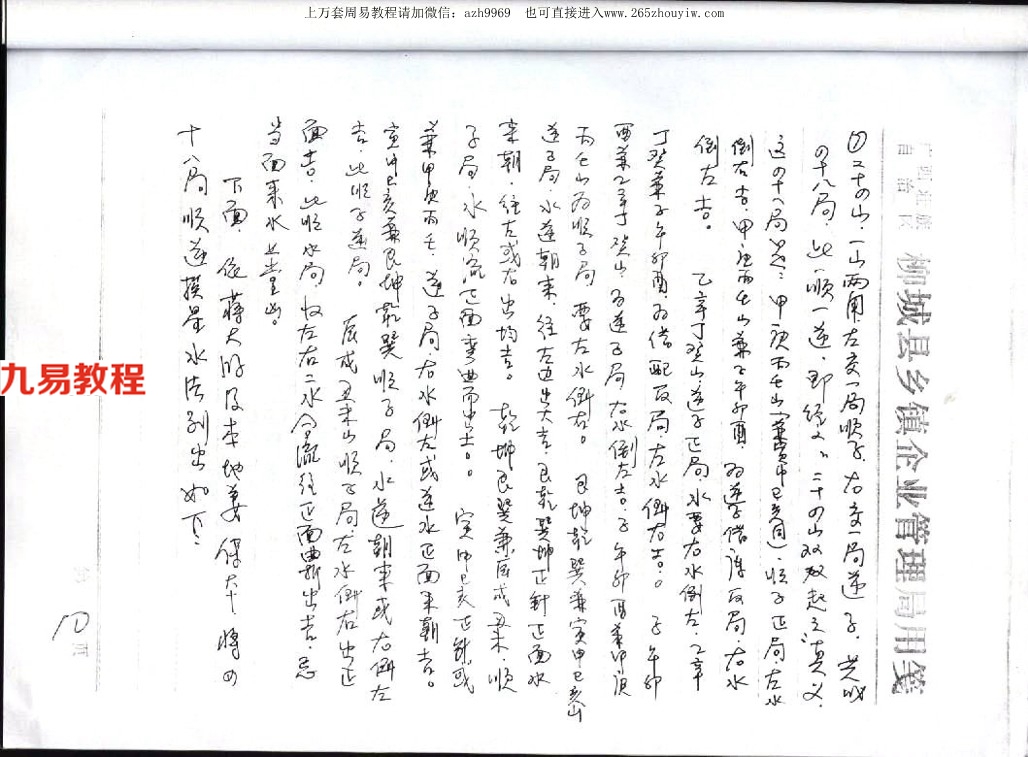 上万套周易教程请加微信：azh9969 也可直接进入www.265zhouyiw.com
广西壮族
自治区
柳城县乡镇企业管理局用笺
四二十四山，一山两用，左交一局顺子，右交一局逆子，共成
四十八局，此一顺一逆，即经文：二十四山双双起之真义，
这四十八局是：甲庚丙壬山（兼寅申巳亥同）顺子正局，左水
倒右吉，甲庚丙壬山兼子午卯酉，为逆子借 反局，右水
倒左吉。 乙辛丁癸山逆子正局，水要右水倒左，乙辛
丁癸兼子午卯酉，为借配反局，左水倒右吉。 子午卯
酉兼乙辛丁癸山，为逆子局，右水倒左吉。子午卯酉兼甲庚
丙壬山为顺子局，要左水倒右。 艮坤乾巽兼寅申巳亥山
逆子局，水逆朝来，往左边出大吉，艮乾巽坤正针正面水
来朝，往左或右出均吉。 乾坤艮巽兼辰戌丑未，顺
子局，水顺流正面弯曲而出吉。 寅申巳亥正针或
兼甲庚丙壬，逆子局，右水倒左或逆水正面来朝吉。
寅申巳亥兼艮坤乾巽顺子局，水逆朝来或右倒左
吉，此顺子逆局。 辰戌丑未山顺子局，左水倒右出正
面吉，此顺水局，收左右二水合流往正面曲折出吉，忌
当面来水 凶。
下面，依蒋大鸿及本地姜保大 将四
十八局顺逆 星水法列出如下：
九易教程
页